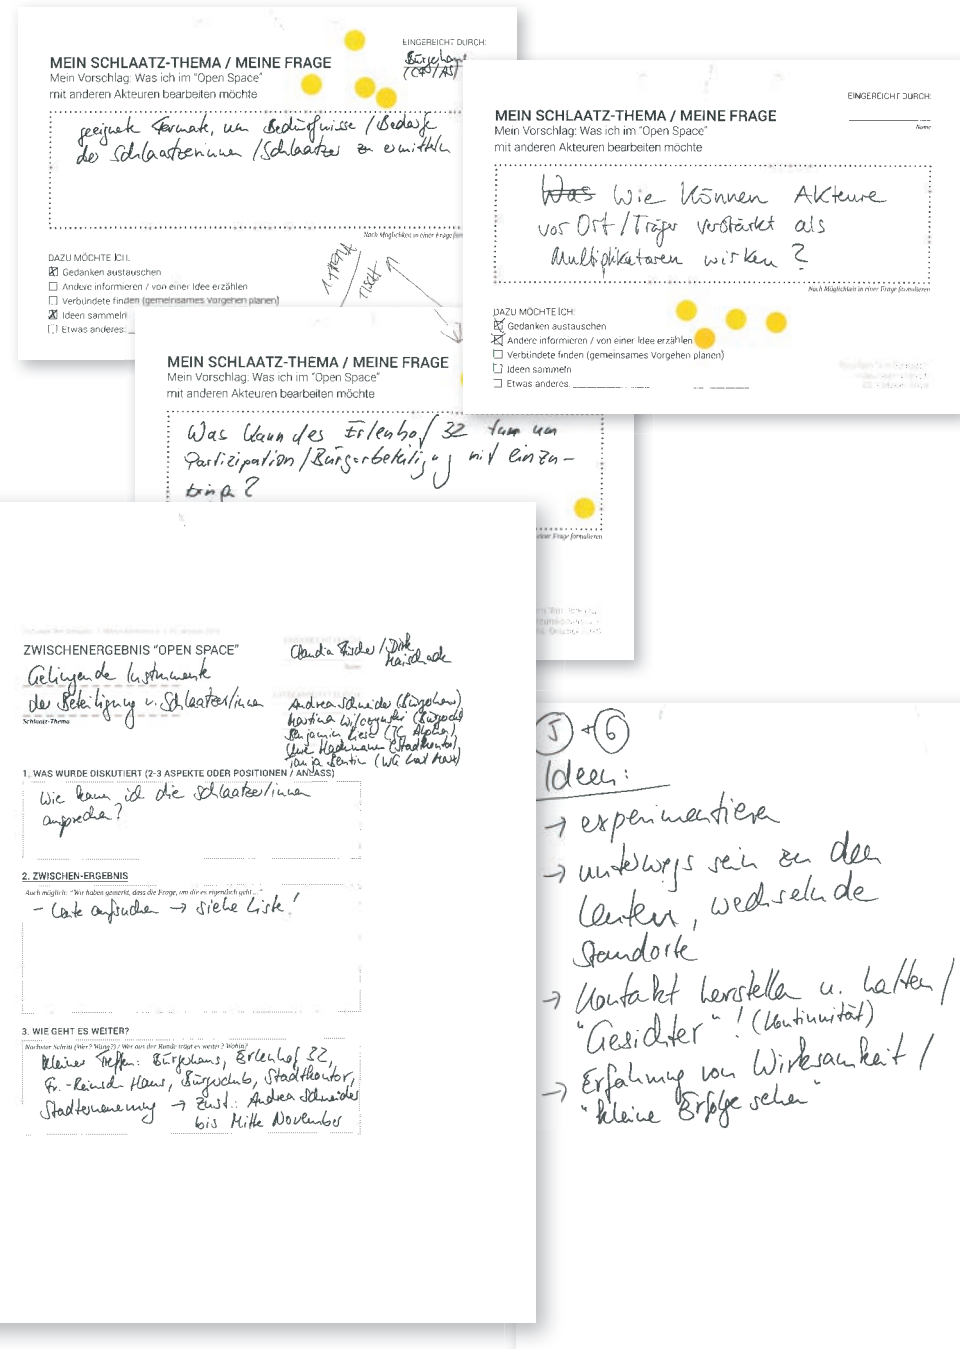 MEIN SCHLAATZ-THEMA / MEINE FRAGE
Mein Vorschlag: Was ich im "Open Space"
mit anderen Akteuren bearbeiten möchte
EINGEREICHT DURCH:
Bürgerhaus
geeignete Formate, um Bedürfnisse / Bedarfe
der Schlaatzerinnen / Schlaatzer zu ermitteln
Nach Möglichkeit in einer Frage for
DAZU MÖCHTE ICH:
Gedanken austauschen
Andere informieren / von einer Idee erzählen
Verbündete finden (gemeinsames Vorgehen planen)
Ideen sammeln
Etwas anderes:
1 THEMA
TISCH
MEIN SCHLAATZ-THEMA / MEINE FRAGE
Mein Vorschlag: Was ich im "Open Space"
mit anderen Akteuren bearbeiten möchte
EINGEREICHT DURCH:
Name
Was Wie können Akteure
vor Ort / Träger verstärkt als
Multiplikatoren wirken?
Nach Möglichkeit in einer Frage formulieren
DAZU MÖCHTE ICH:
Gedanken austauschen
Andere informieren / von einer Idee erzählen
Verbündete finden (gemeinsames Vorgehen planen)
Ideen sammeln
Etwas anderes:
MEIN SCHLAATZ-THEMA / MEINE FRAGE
Mein Vorschlag: Was ich im "Open Space"
mit anderen Akteuren bearbeiten möchte
Was kann das Erlenhof 32 tun um
Partizipation / Bürgerbeteiligung mit einzu-
bringen?
einer Frage formulieren
ZWISCHENERGEBNIS "OPEN SPACE"
Claudia Fischer / Dirk
Harschack
Gelingende Instrumente
der Beteiligung v. Schlaatzer/innen
Schlaatz-Thema
Andrea Schneider (Bürgerhaus)
Martina Wilczynski (Bürgerclub)
Benjamin
Hackmann (Stadtkontor)
Tanja
1. WAS WURDE DISKUTIERT (2-3 ASPEKTE ODER POSITIONEN / ANLASS)
Wie kann ich die Schlaatzer/innen
ansprechen?
2. ZWISCHEN-ERGEBNIS
Auch möglich: "Wir haben gemerkt, dass die Frage, um die es eigentlich geht ..."
- Leute aufsuchen → siehe Liste!
3. WIE GEHT ES WEITER?
Nächster Schritt (Wer? Wann?) / Wer aus der Runde trägt es weiter? Wohin?
kleines Treffen: Bürgerhaus, Erlenhof 32,
Fr.-Reinsch-Haus, Bürgerclub, Stadtkontor,
Stadterneuerung → Zust.: Andrea Schneider
bis Mitte November
5 + 6
Ideen:
→ experimentieren
→ unterwegs sein zu den
Leuten, wechselnde
Standorte
→ Kontakt herstellen u. halten /
"Gesichter"! (Kontinuität)
→ Erfahrung von Wirksamkeit /
"kleine Erfolge sehen"